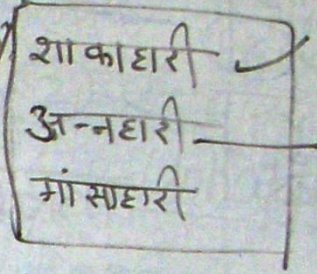 शाकाहारी
अन्नहारी
मांसाहारी